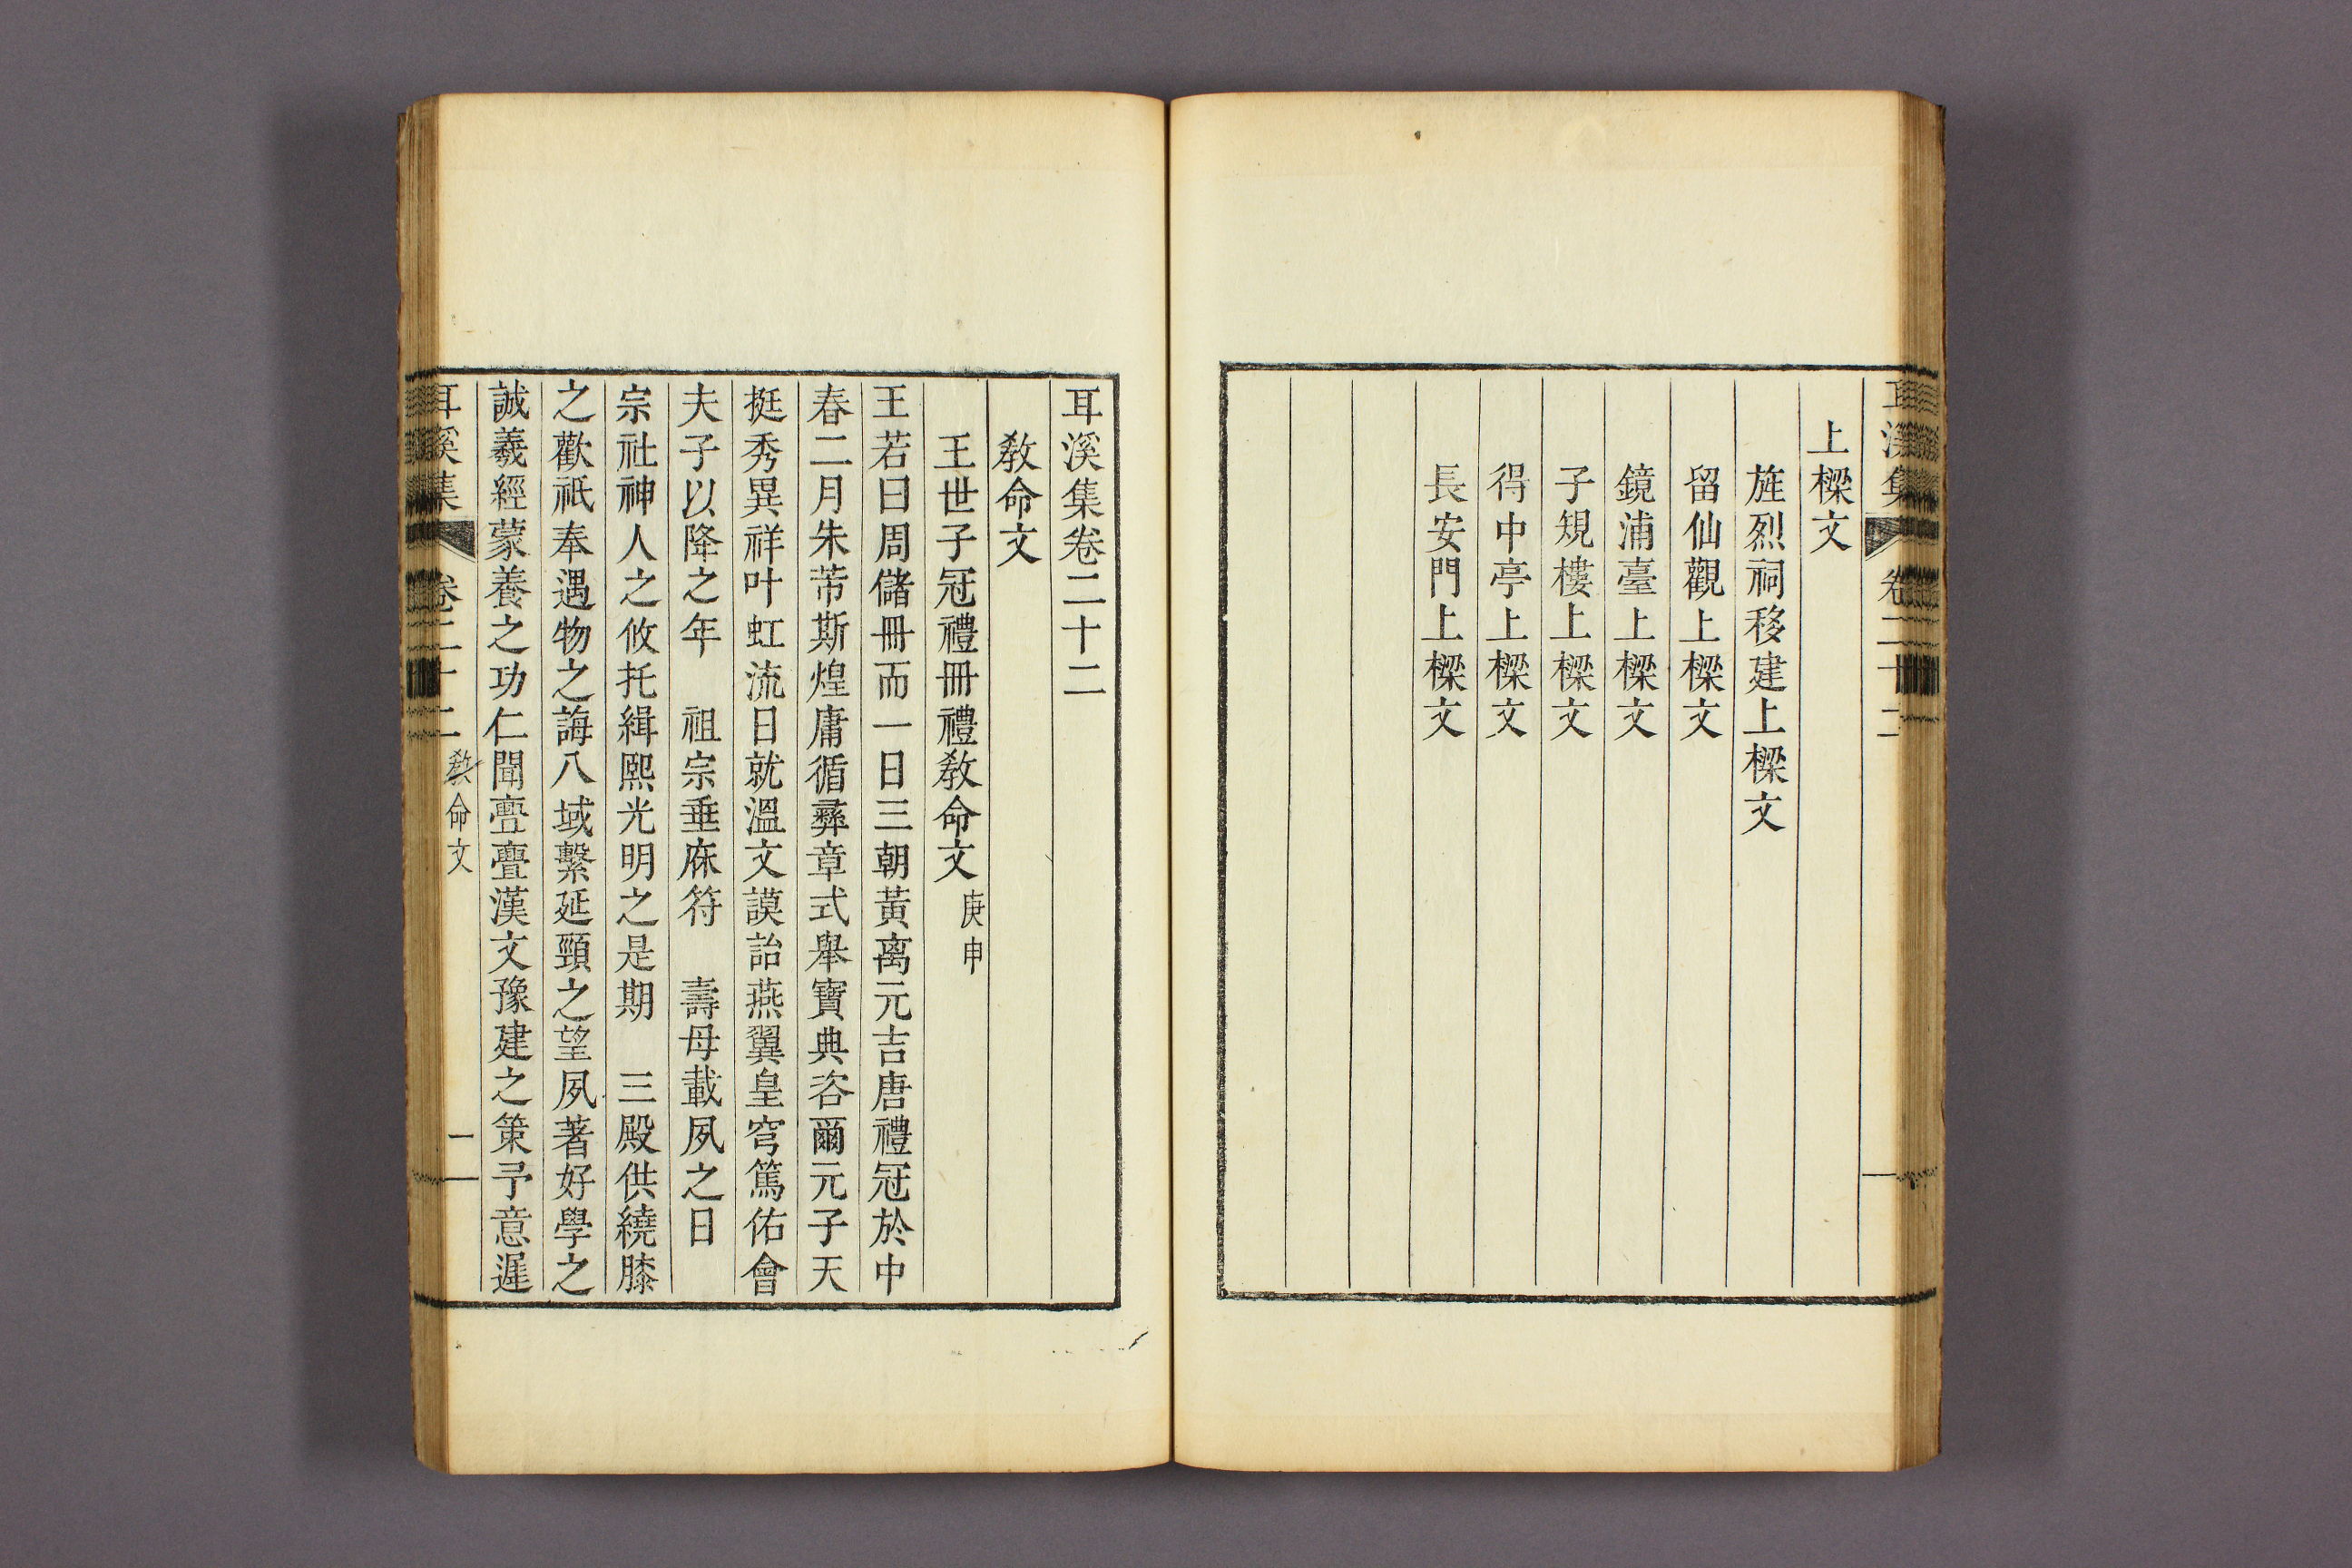 耳溪集 卷二十二
上樑文
旌烈祠移建上樑文
留仙觀上樑文
鏡浦臺上樑文
子規樓上樑文
得中亭上樑文
長安門上樑文
耳溪集卷二十二
敎命文
王世子冠禮冊禮敎命文 庚申
王若曰周儲冊而一日三朝黃离元吉唐禮冠於中
春二月朱芾斯煌庸循彝章式舉寶典咨爾元子天
挺秀異祥叶虹流日就溫文謨詒燕翼皇穹篤佑會
夫子以降之年 祖宗垂庥符 壽母載夙之日
宗社神人之攸托緝熙光明之是期 三殿供繞膝
之歡祗奉遇物之誨八域繫延頸之望夙著好學之
誠羲經蒙養之功仁聞亹亹漢文豫建之策予意遲
耳溪集 卷二十二 敎命文 一